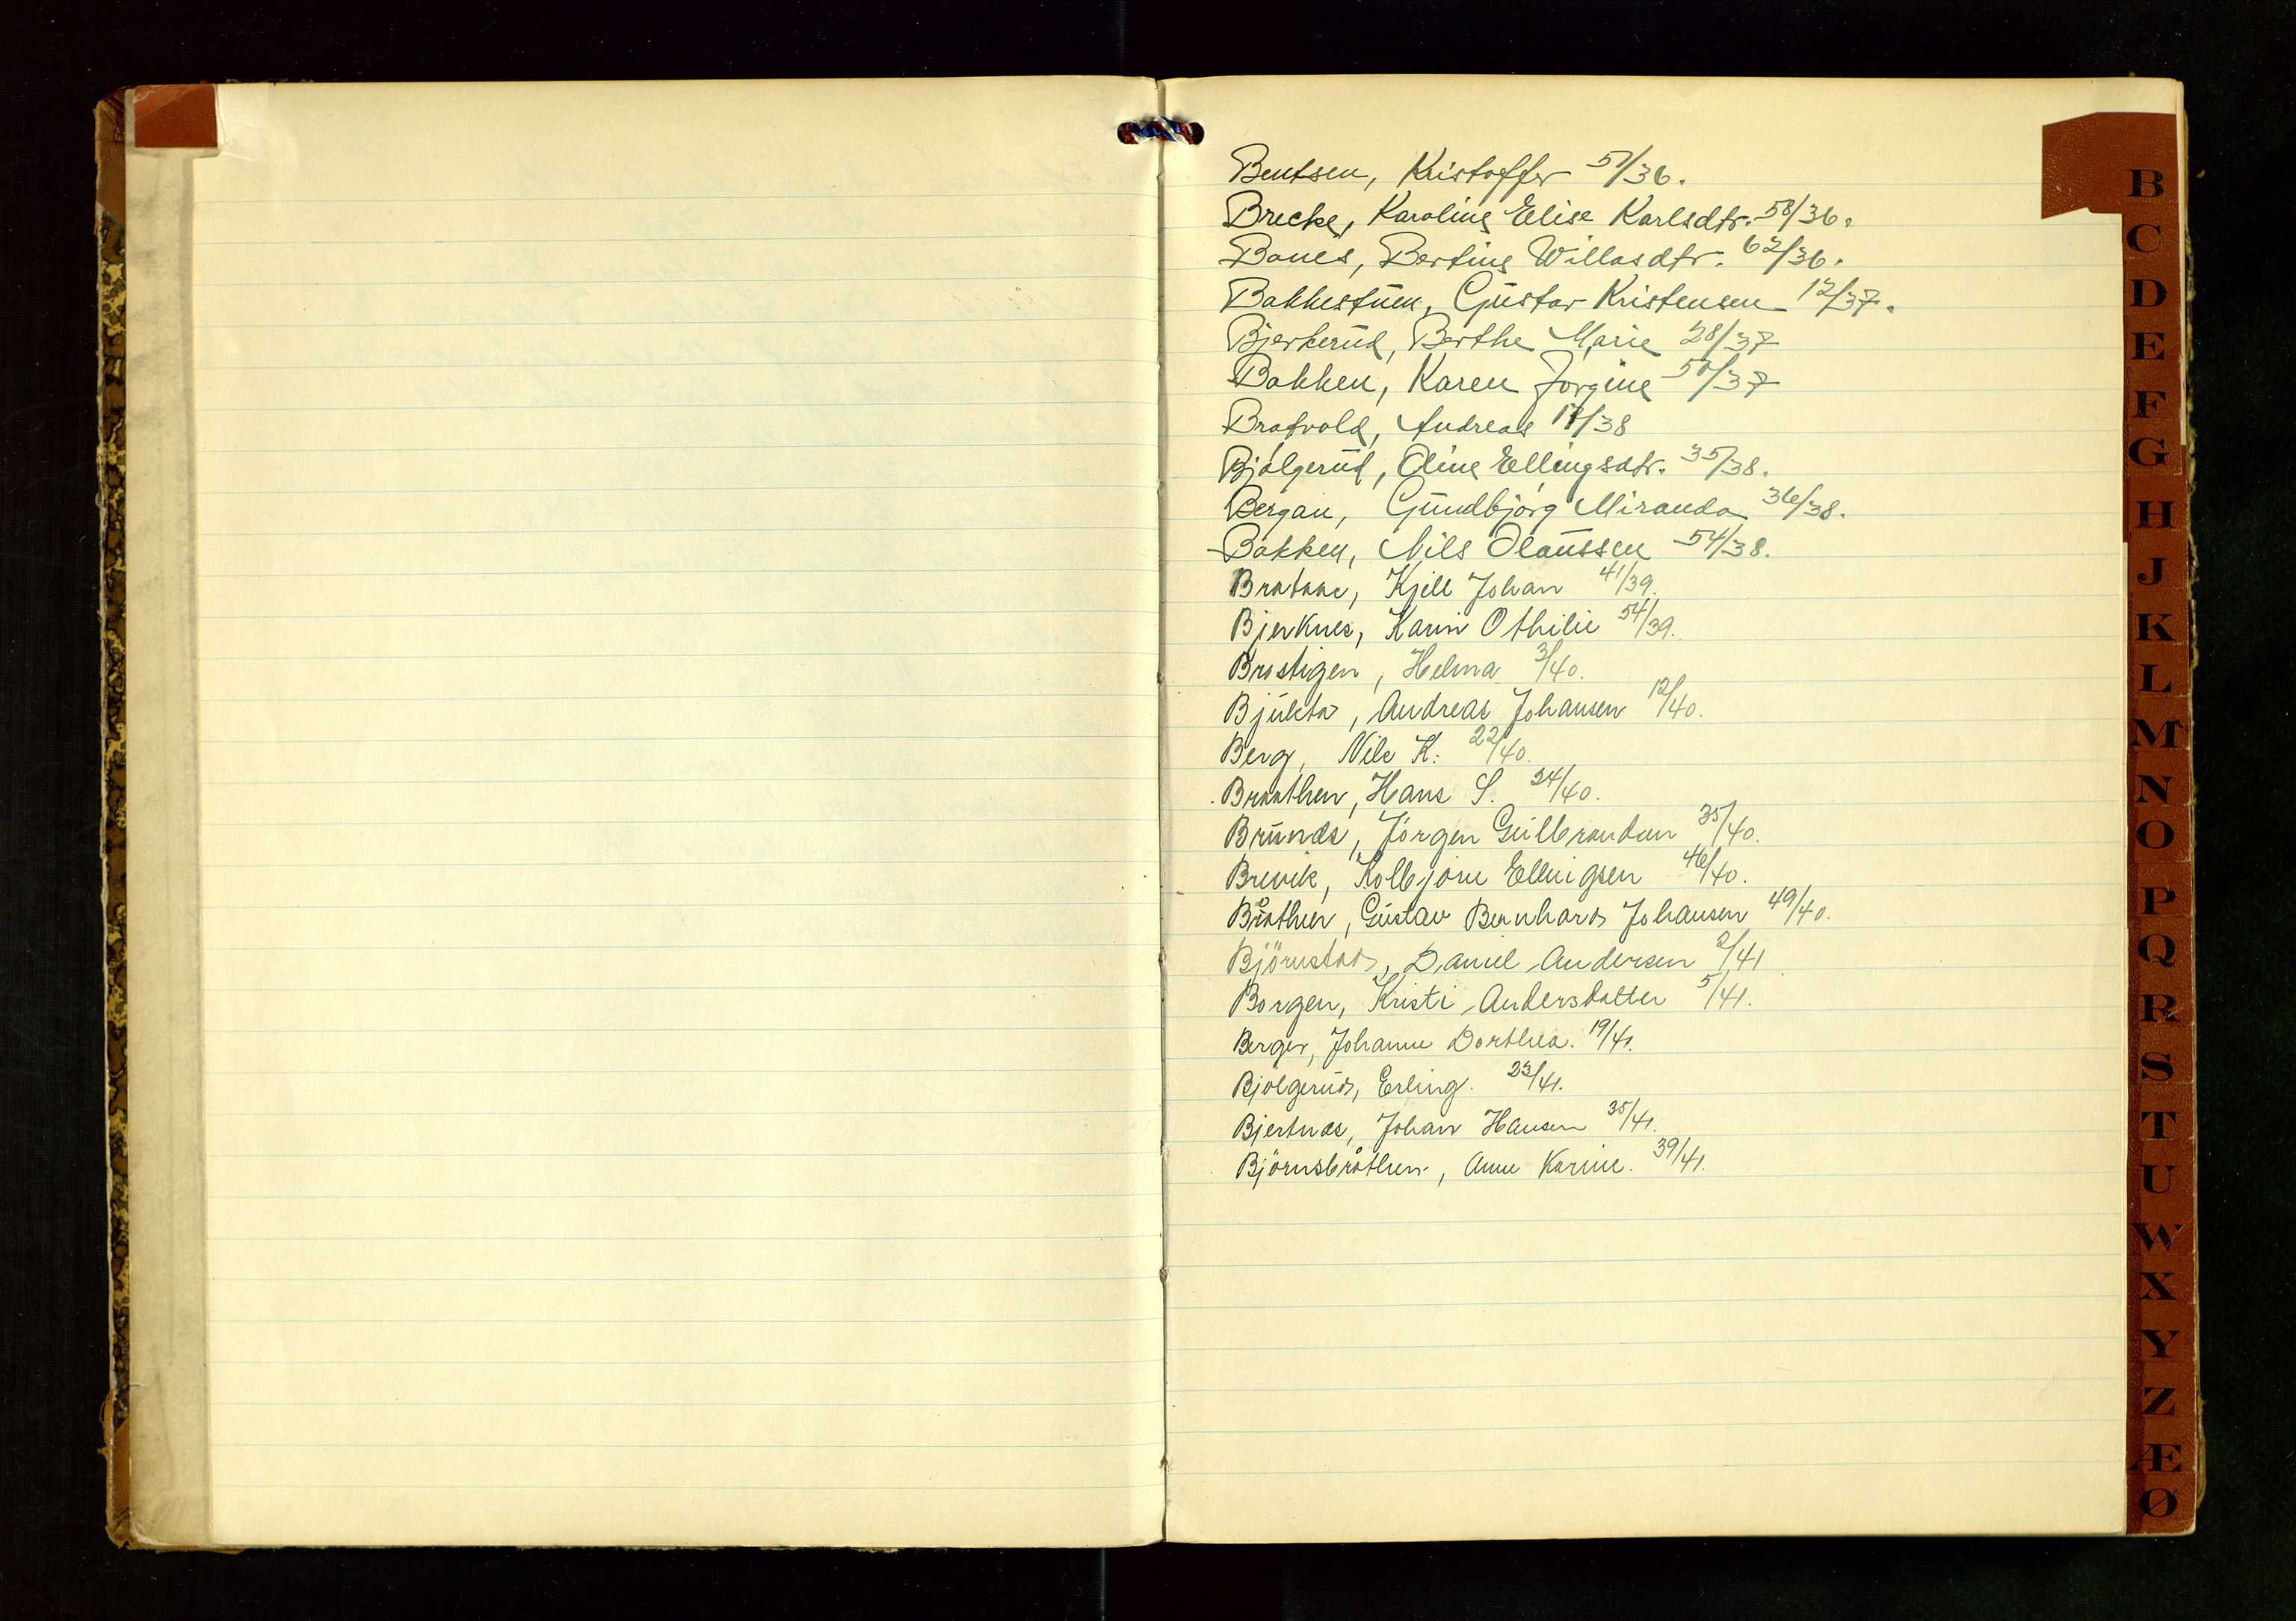 Bentsen, Kristoffer 51/36.
Brecke, Karoline Elise Karlsdtr. 58/36.
Bones, Bertine Willasdtr. 62/36.
Bakkestuen, Gustav Kristensen 12/37.
Bjerkerud, Berthe Marie 28/37
Bakken, Karen Jorgine 50/37
Bratvold, Andreas 17/38
Bjølgerud, Oline Ellingsdtr. 35/38.
Bergan, Gundbjørg Miranda 36/38.
Bakken, Nils Olaussen 54/38.
Brataas, Kjell Johan 41/39.
Bjerknes, Karin Othilie 54/39.
Brostigen, Helma 3/40.
Bjúkta, Andreas Johansen 12/40.
Berg, Nils K. 22/40.
Braathen, Hans S. 24/40.
Brunæs, Jörgen Gulbrandsen 35/40.
Brevik, Kolbjörn Ellingsen 46/40.
Bråthen, Gustav Bernhard Johansen 49/40.
Björnstad, Daniel Andersen 2/41
Borgen, Kristi Andersdatter 5/41.
Berger, Johanne Dorthea. 19/41.
Bjölgerud, Erling. 23/41.
Bjertnæs, Johan Hansen 35/41.
Björnsbråthen, Anne Karine. 39/41.
B
C
D
E
F
G
H
J
K
L
M
N
O
P
Q
R
S
T
U
W
X
Y
Z
Æ
Ø